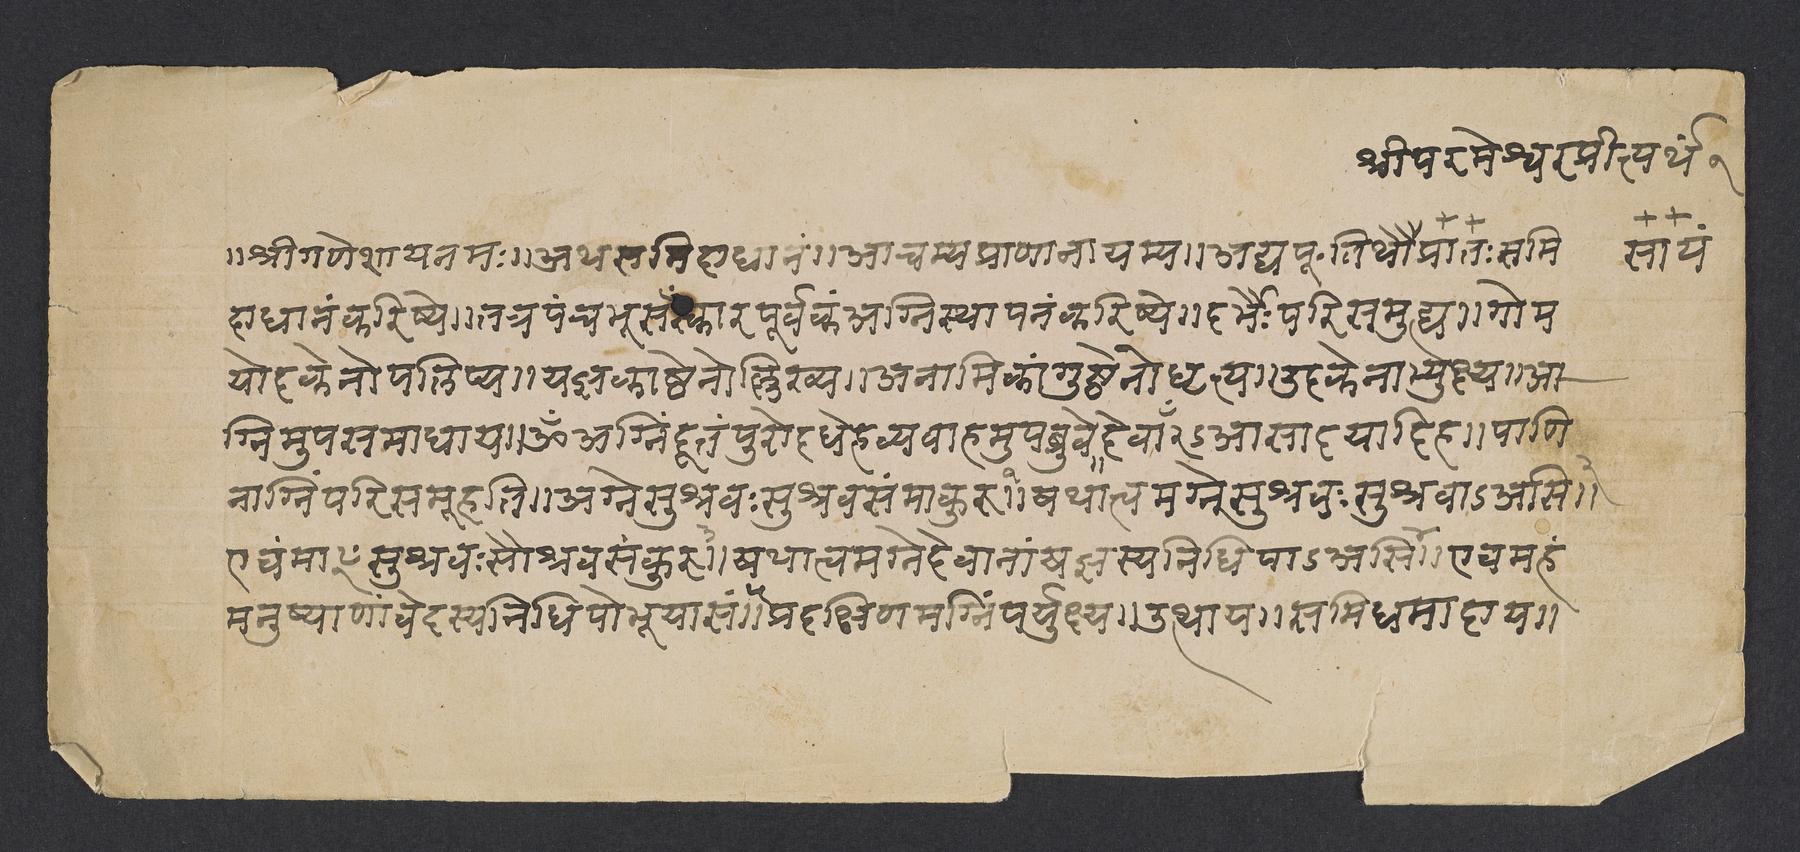 श्रीपरमेश्वरप्रीत्यर्थं १
॥श्रीगणेशायनमः॥अथसमिदाधानं॥आचम्यप्राणानायम्य॥अद्यपू॰तिथौप्रातःसमि सायं
दाधानंकरिष्ये॥तत्रपंचभूसंस्कारपूर्वकंअग्निस्थापनंकरिष्ये॥दर्भैःपरिसमुह्य॥गोम
योदकेनोपलिप्य॥यज्ञकाष्ठेनोल्लिख्य॥अनामिकांगुष्ठेनोधृत्य॥उदकेनाभ्युक्ष्य॥अ
ग्निमुपसमाधाय॥ॐअग्निंदूतंपुरोदधेहव्यवाहमुपब्रुवेदेवाँ२ऽआसादयादिह॥पाणि
नाग्निंपरिसमूहति॥अग्नेसुश्रवःसुश्रवसंमाकुरु१॥यथात्वमग्नेसुश्रवःसुश्रवाऽअसि२॥
एवंमाꣳसुश्रवःसौश्रवसंकुरु३॥यथात्वमग्नेदेवानांयज्ञस्यनिधिपाऽअसि४॥एवमहं
मनुष्याणांवेदस्यनिधिपोभूयासं५॥प्रदक्षिणमग्निंपर्युक्ष्य॥उत्थाय॥समिधमादाय॥